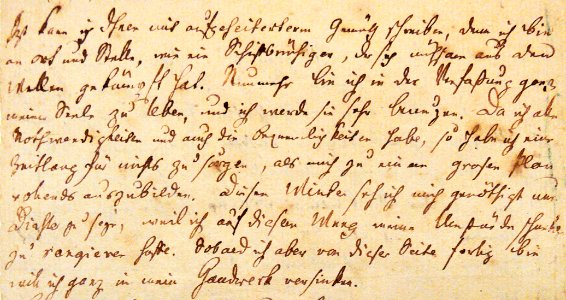 Jezt kann ich Ihnen mit aufgeheiterterm Gemüth schreiben, denn ich bin
an Ort und Stelle, wie ein Schiffbrüchiger, der sich mühsam aus den
Wellen gekämpft hat. Nunmehr bin ich in der Verfaßung ganz
meiner Seele zu leben, und ich werde sie sehr benuzen. Da ich alle
Nothwendigkeiten und auch die Bequemlichkeiten habe, so habe ich eine
Zeitlang für nichts zu sorgen, als mich zu einem großen Plan
auszubilden. Diesen Winter seh ich mich genöthigt nur
Dichter zu seyn, weil ich auf diesem Weeg meine Umstände schneller
zu rangieren hoffe. Sobald ich aber von dieser Seite fertig bin
will ich ganz in mein Handwerk versinken.